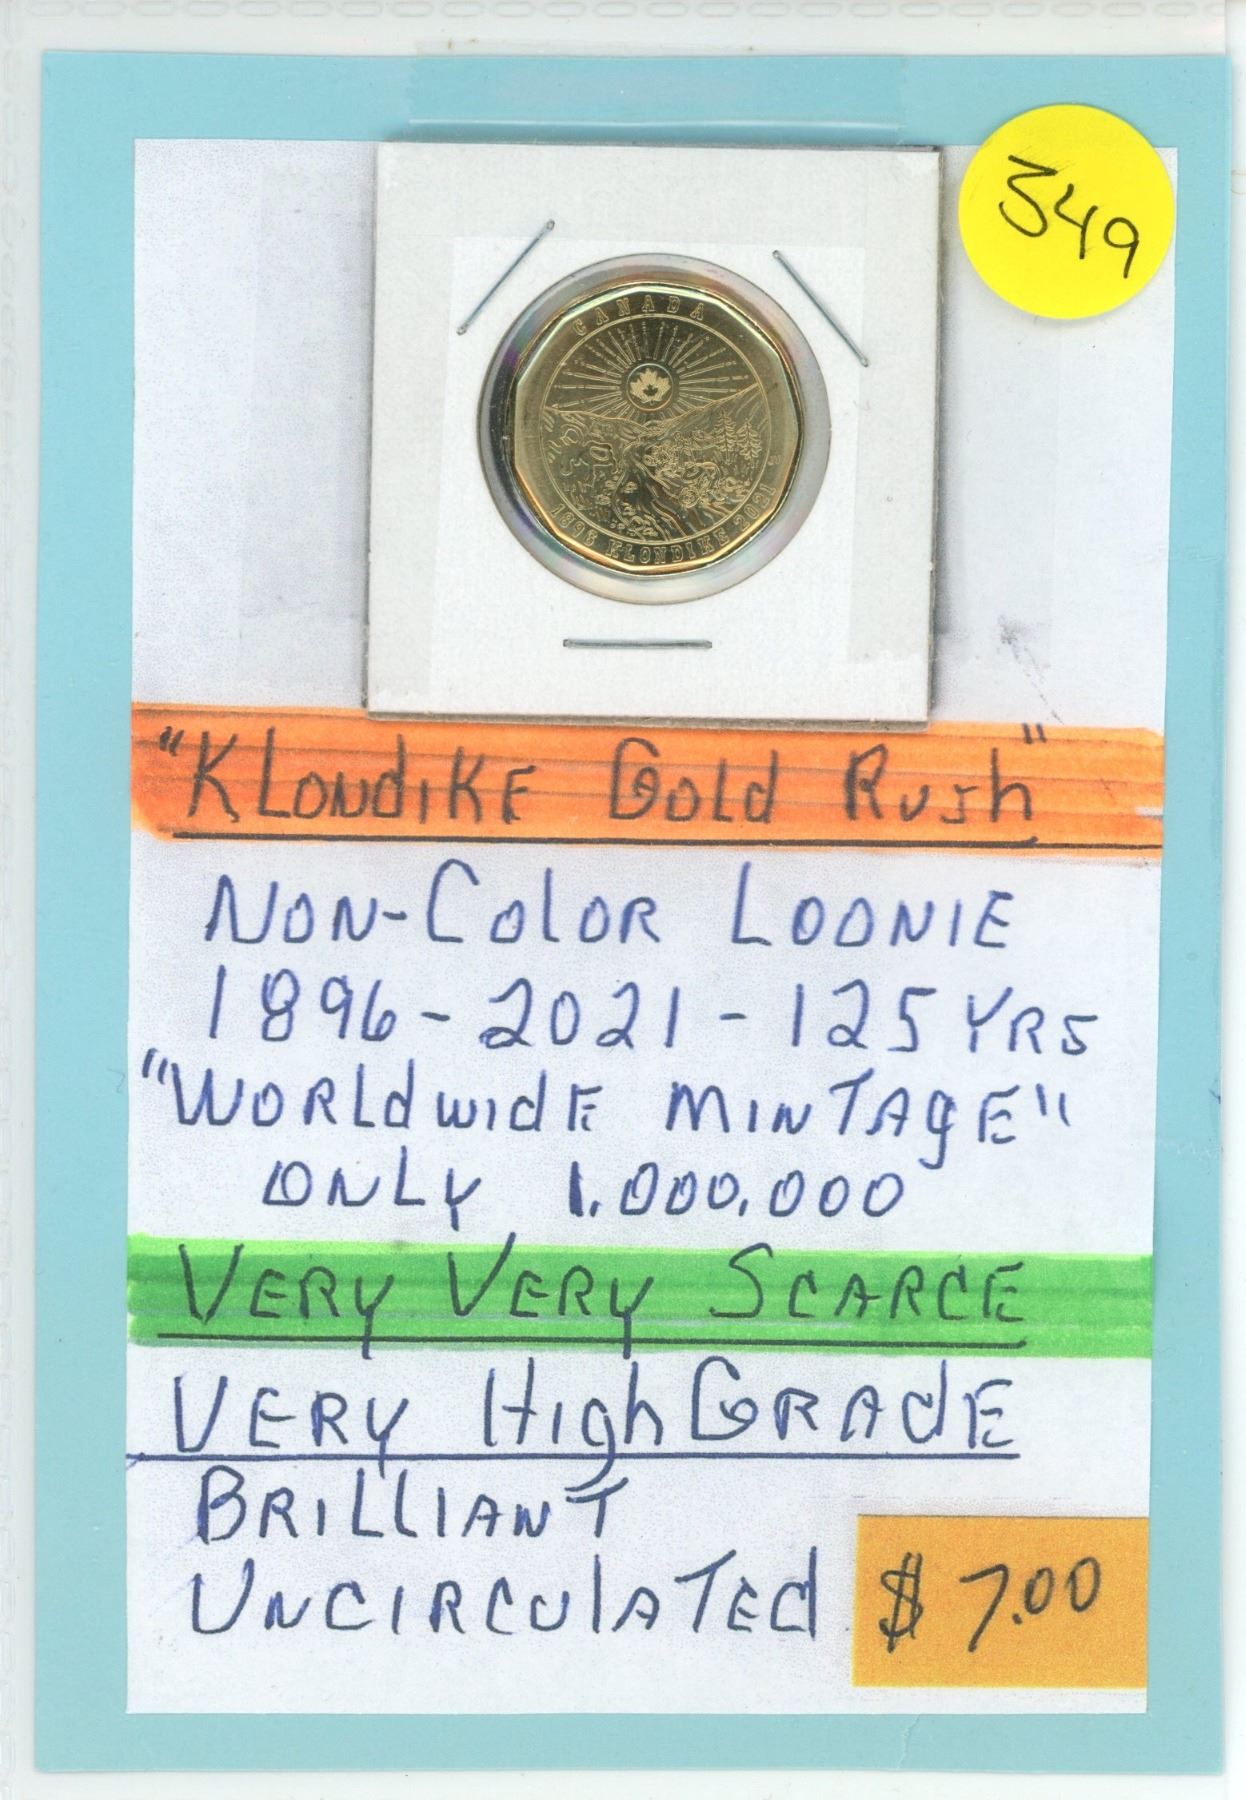 349
CANADA
1896 KLONDIKE 2021
"KLONDIKE GOLD RUSH"
NON-COLOR LOONIE
1896-2021-125 YRS
"WORLDWIDE MINTAGE"
ONLY 1.000.000
VERY VERY SCARCE
VERY HIGH GRADE
BRILLIANT
UNCIRCULATED
$7.00